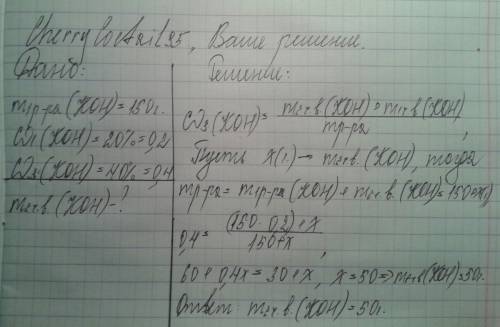 CherryCoctail95, Ваше решение.
Дано:
m1р-ра (KOH) = 150г.
ω1 (KOH) = 20% = 0,2
ω2 (KOH) = 40% = 0,4
m2т.в. (KOH) - ?
Решение:
ω2 (KOH) = m1т.в. (KOH) + m2т.в. (KOH) / mр-ра,
Пусть x(г.) - m2т.в. (KOH), тогда
mр-ра = m1р-ра (KOH) + m2т.в. (KOH) = 150+x,
0,4 = (150 · 0,2) + x / 150+x,
60 + 0,4x = 30 + x, x = 50 => m2т.в (KOH) = 50г.
Ответ: m2т.в. (KOH) = 50г.